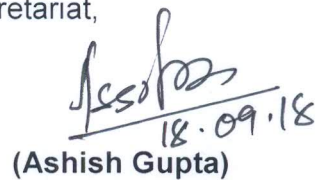 retariat,
18.09.18
(Ashish Gupta)